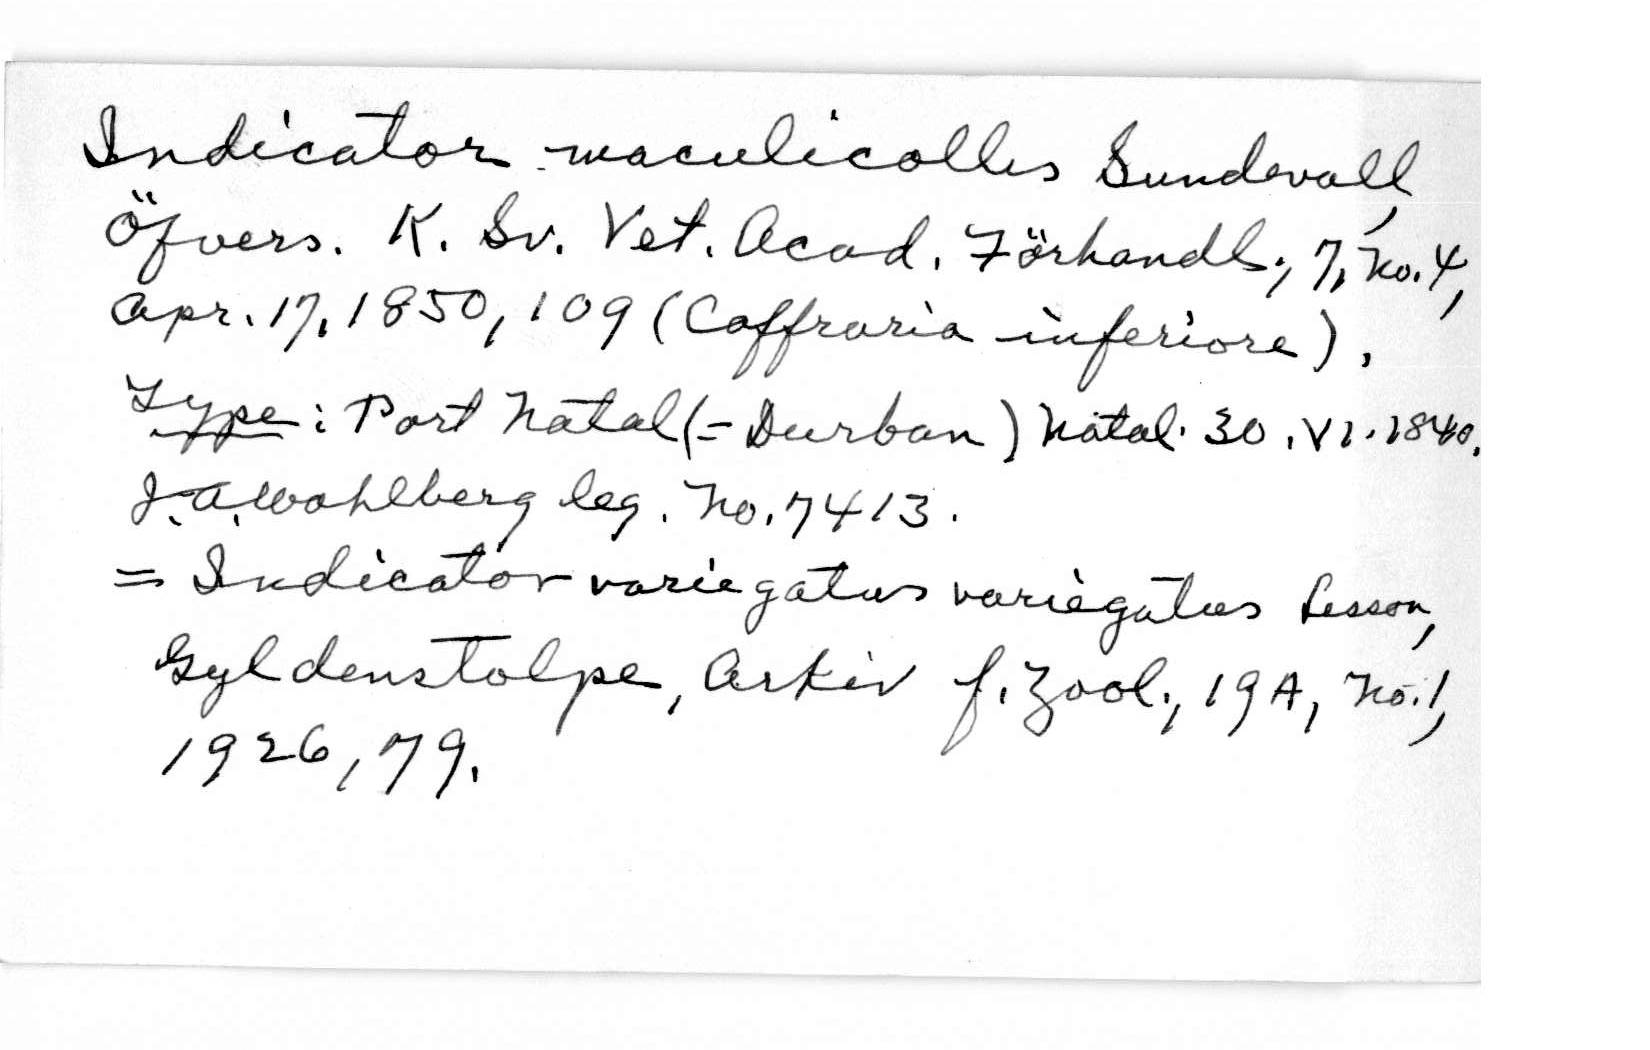 Indicator maculicollis Sundevall,
Öfvers. K. Sv. Vet. Acad. Förhandl., 7, No. 4,
Apr. 17, 1850, 109 (Caffraria inferiore).
Type: Port Natal (= Durban) Natal. 30.VI.1840.
J.A. Wahlberg leg. No. 7413.
= Indicator variegatus variegatus Lesson,
Gyldenstolpe, Arkiv f. Zool., 19A, No. 1,
1926, 79.